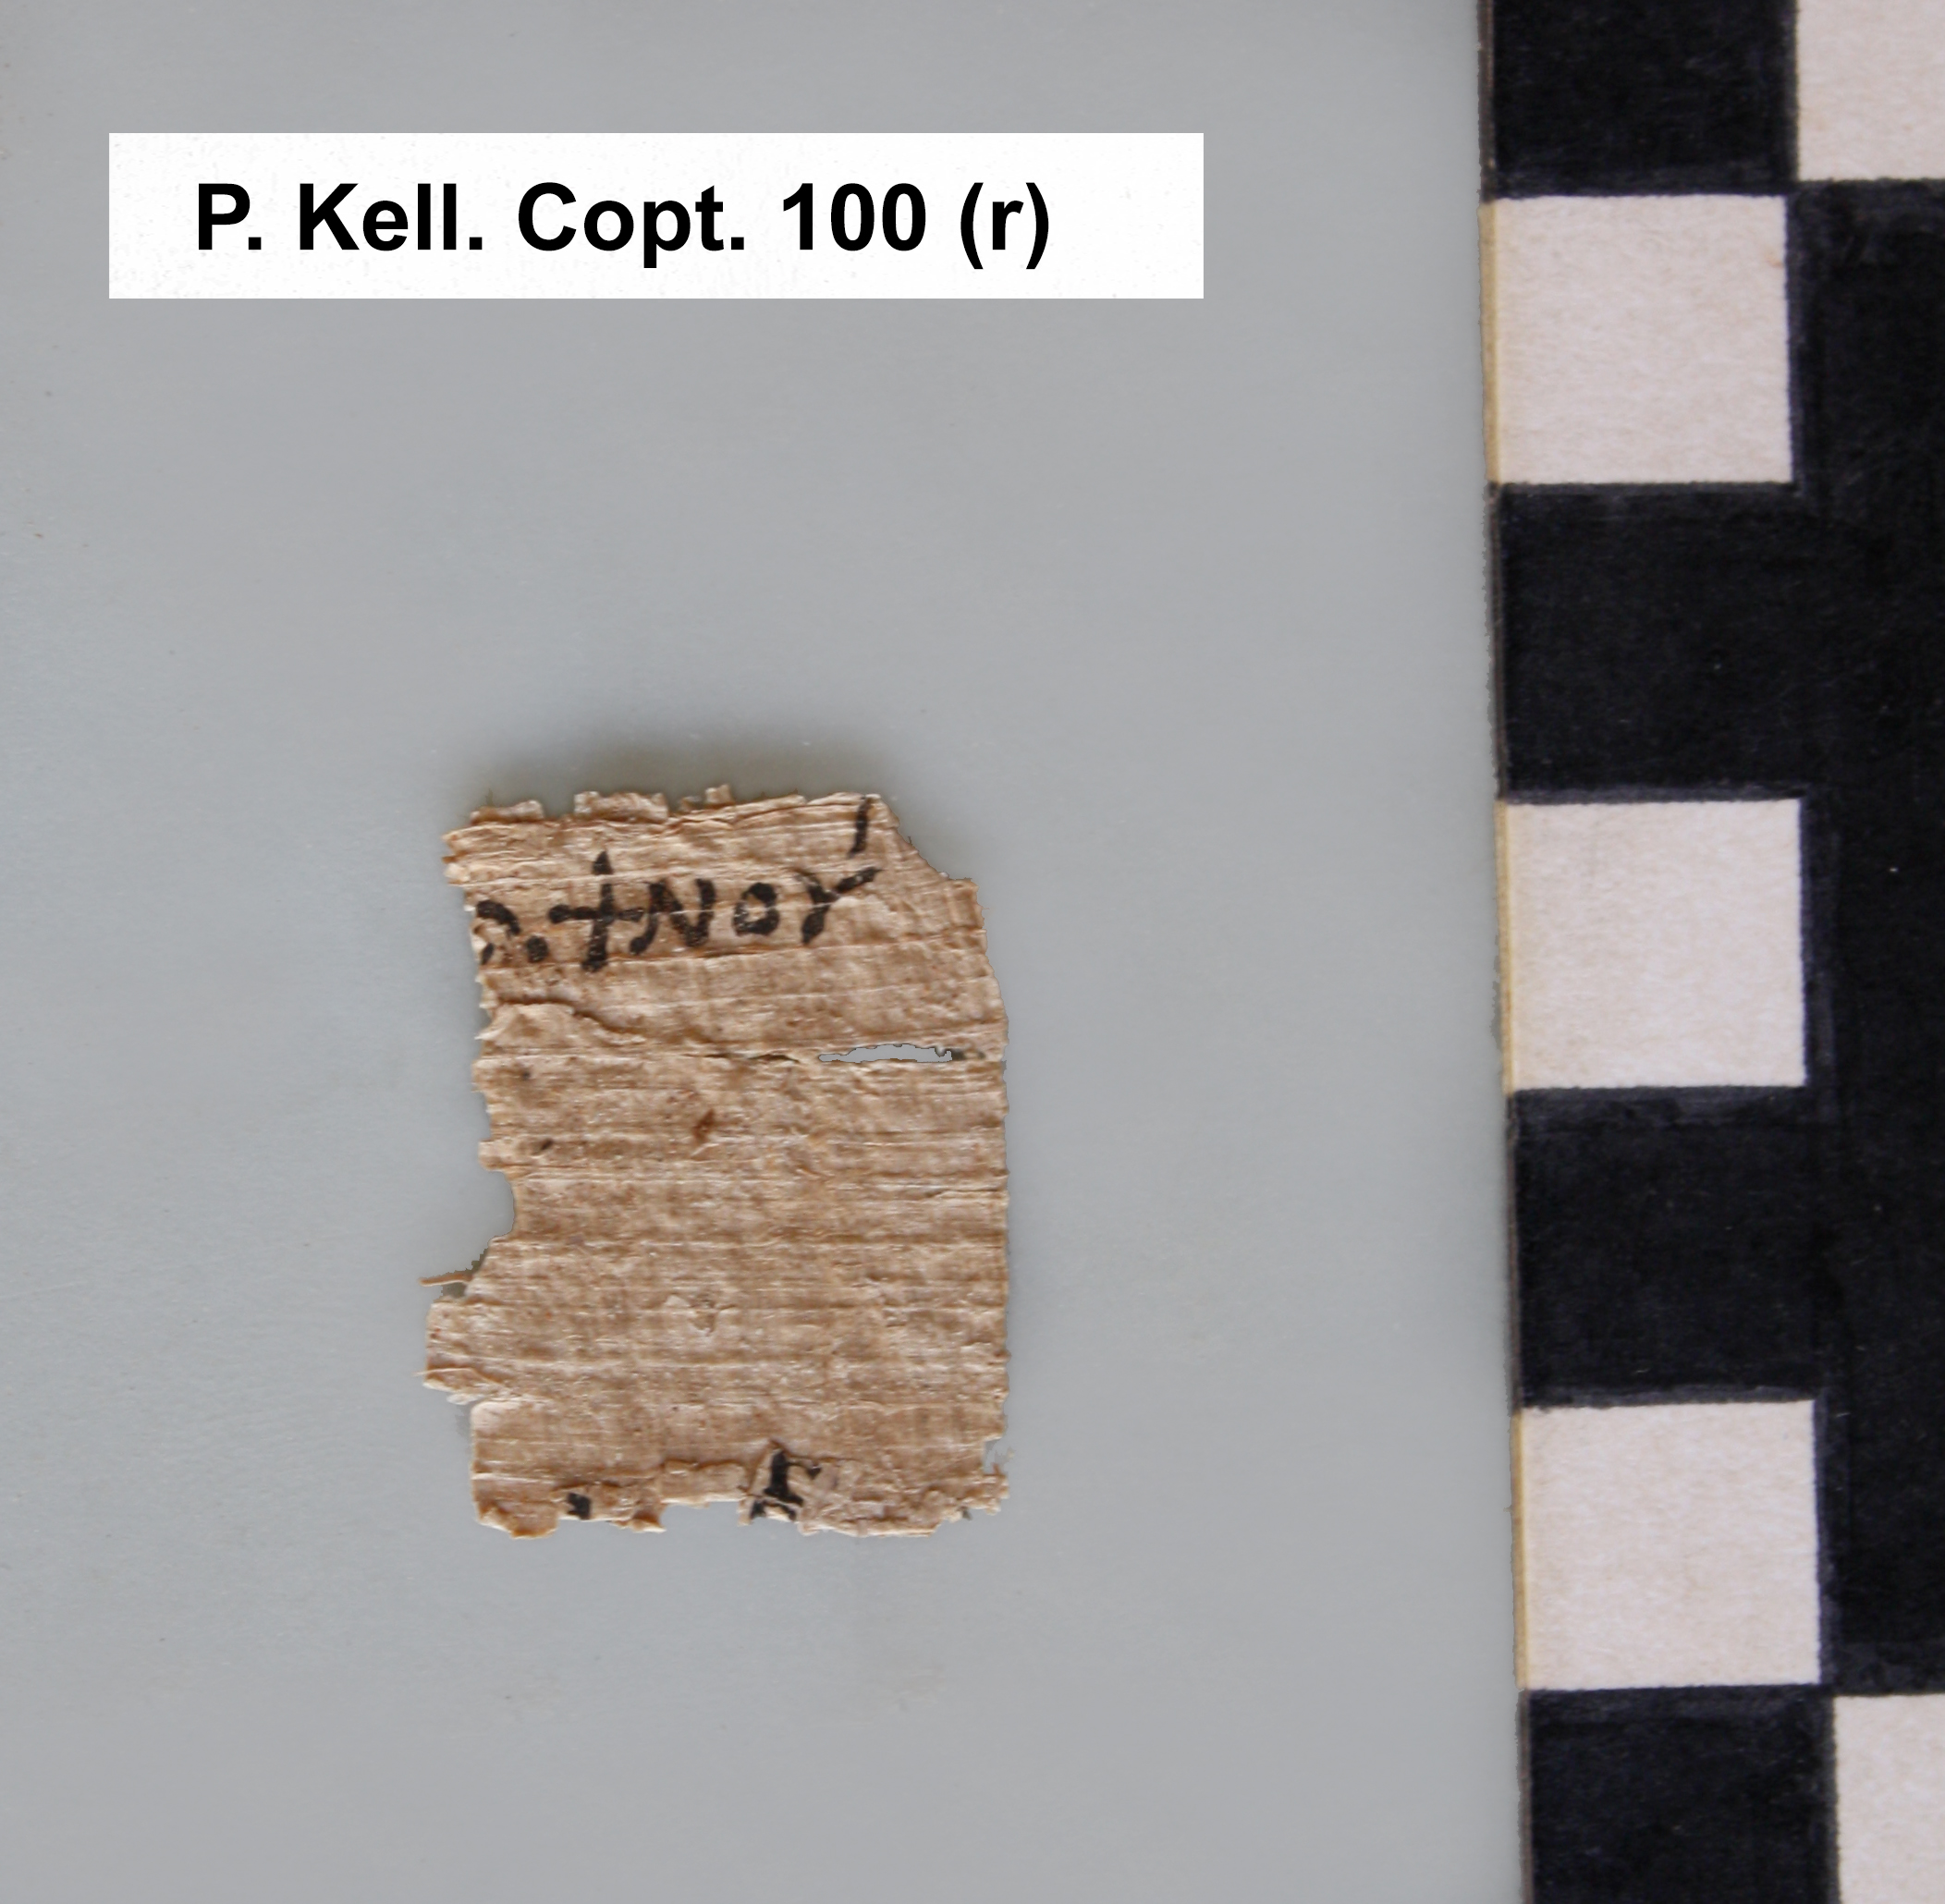 P. Kell. Copt. 100 (r)
ϯⲛⲟⲩ